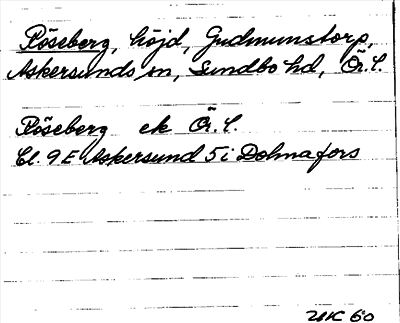 Röseberg, höjd, Gudmunstorp,
Askersunds sn, Sundbo hd, Ör. l.
Röseberg ek Ör. l.
Bl. 9 E Askersund 5 i Dohnafors
UK 60